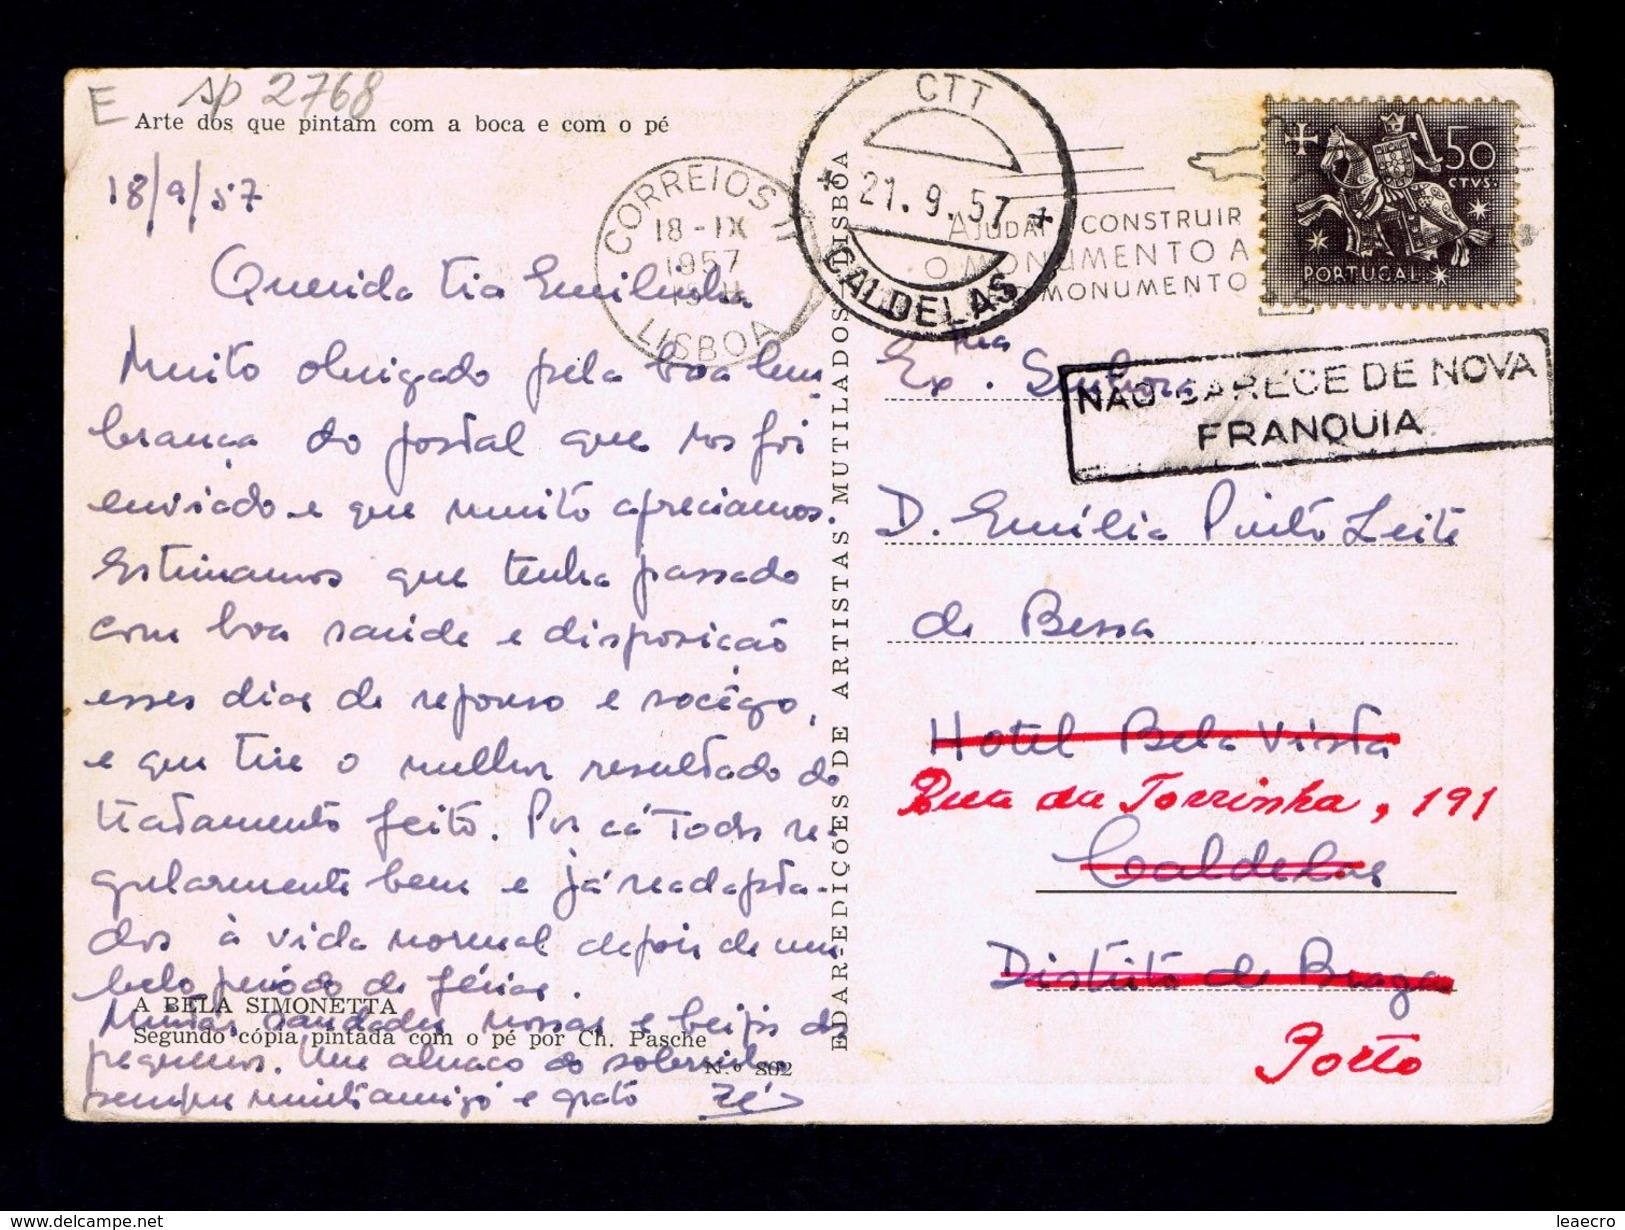 E sp 2768
Arte dos que pintam com a boca e com o pé
18/9/57
Querida Tia Emilinha
Muito obrigado pela boa lem
brança do postal que nos foi
enviado e que muito apreciamos.
Estimamos que tenha passado
com boa saúde e disposição
esses dias de repouso e socêgo,
e que tire o melhor resultado do
tratamento feito. Por cá Todos re-
gularmente bem e já readapta-
dos à vida normal depois de um
belo período de férias.
A BELA SIMONETTA
Muitas saudades nossas e beijos dos
Segundo cópia pintada com o pé por Ch. Pasche
pequenos. Um abraço do sobrinho
N.º 802
sempre muito amigo e grato Zé
EDAR-EDIÇÕES DE ARTISTAS MUTILADOS LISBOA
CORREIOS
18-IX
1957
LISBOA
CTT
21.9.57
CALDELAS
AJUDAR A CONSTRUIR
O MONUMENTO A
MONUMENTO
50
CTVS.
PORTUGAL
NÃO CARECE DE NOVA
FRANQUIA
Ex.ma Senhora
D. Emília Pinto Leite
de Bessa
Hotel Bela Vista
Rua da Torrinha, 191
Caldelas
Distrito de Braga
Porto
delcampe.net
leaecro